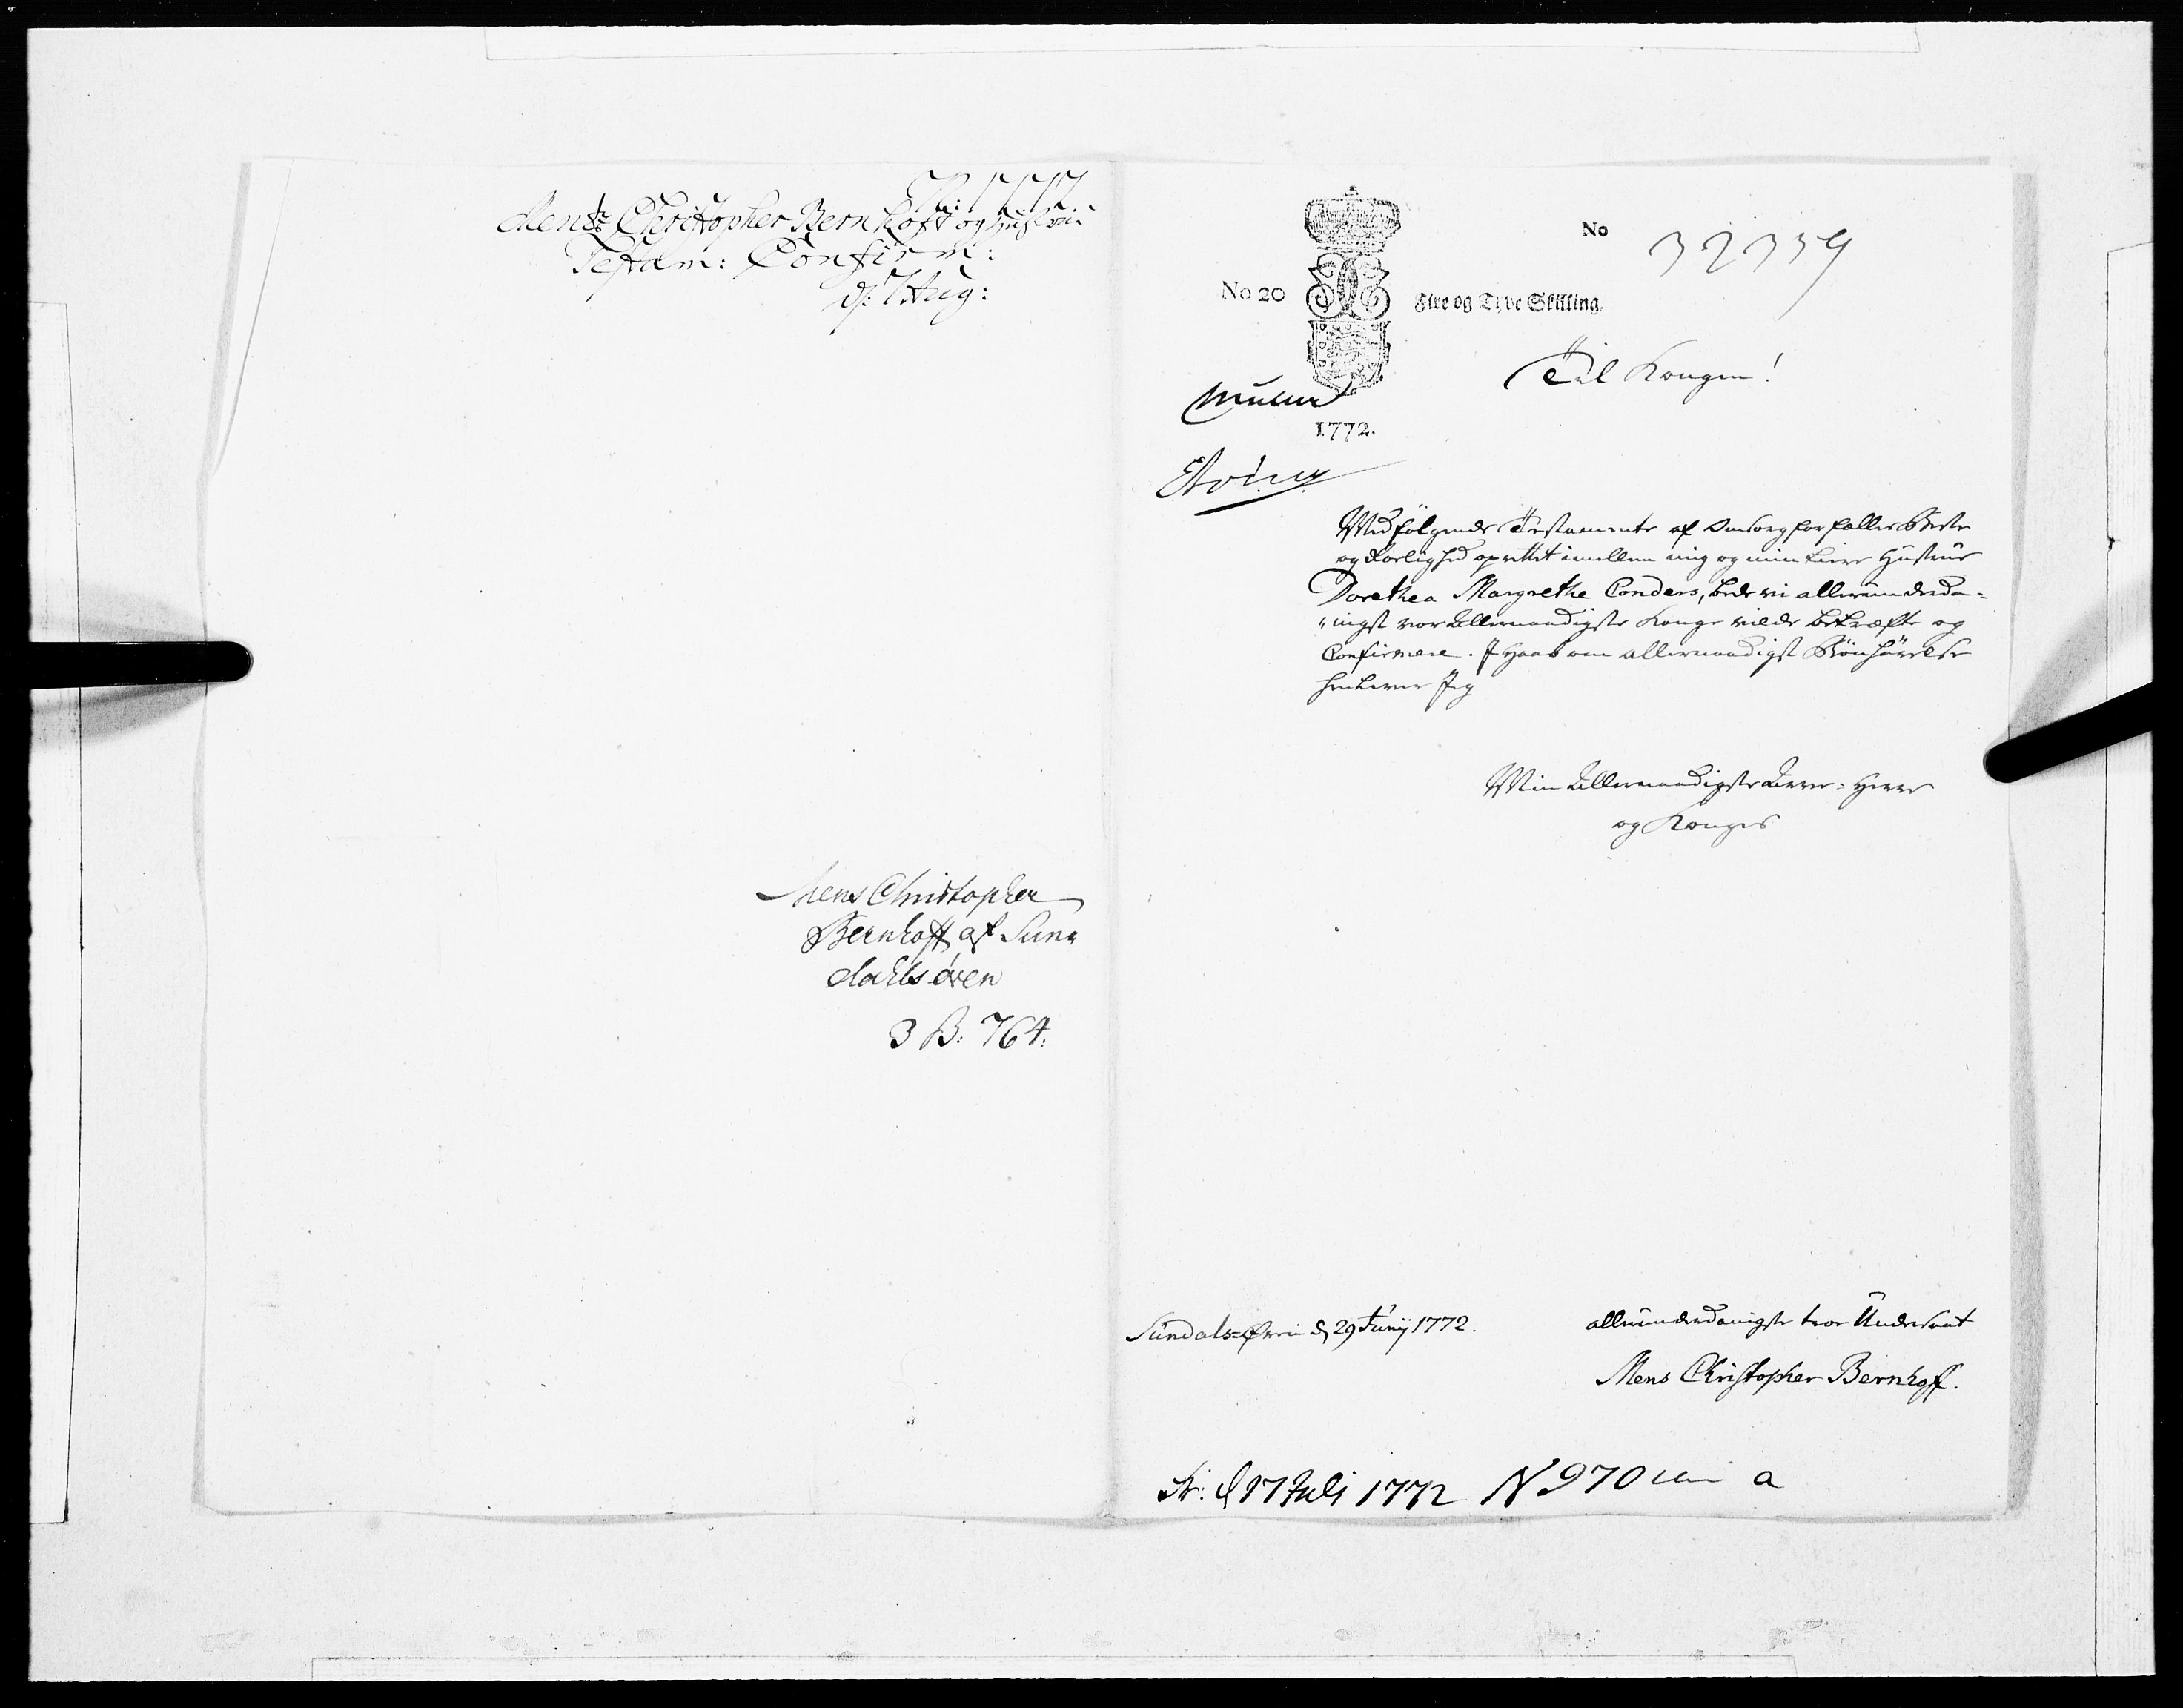 Mens Christopher Bernhoft og Hustrue
Testam: Confirm:
d: 7 Aug:
Mens Christopher
Bernhoft af Sun-
dahls øren
3 B: 764:
No 32359
No 20 Fire og Tyve Skilling.
Til Kongen!
1772.
Medfølgende Testamente af Omsorg for fælles Beste
og Kierlighed oprettet imellem mig og min kiere Hustrue
Dorethea Margrethe Conders, bede vi allerunderda-
"nigst vor Allernaadigste Konge vilde bekræfte og
Confirmere. I Haab om allernaadigst Bönhörelse
henlever Jeg
Min Allernaadigste Arve-Herre
og Konges
Sundals-Øren d 29 Junij 1772.
allerunderdanigste troe Undersaat
Mens Christopher Bernhoft.
d 17 Juli 1772 N 970 a